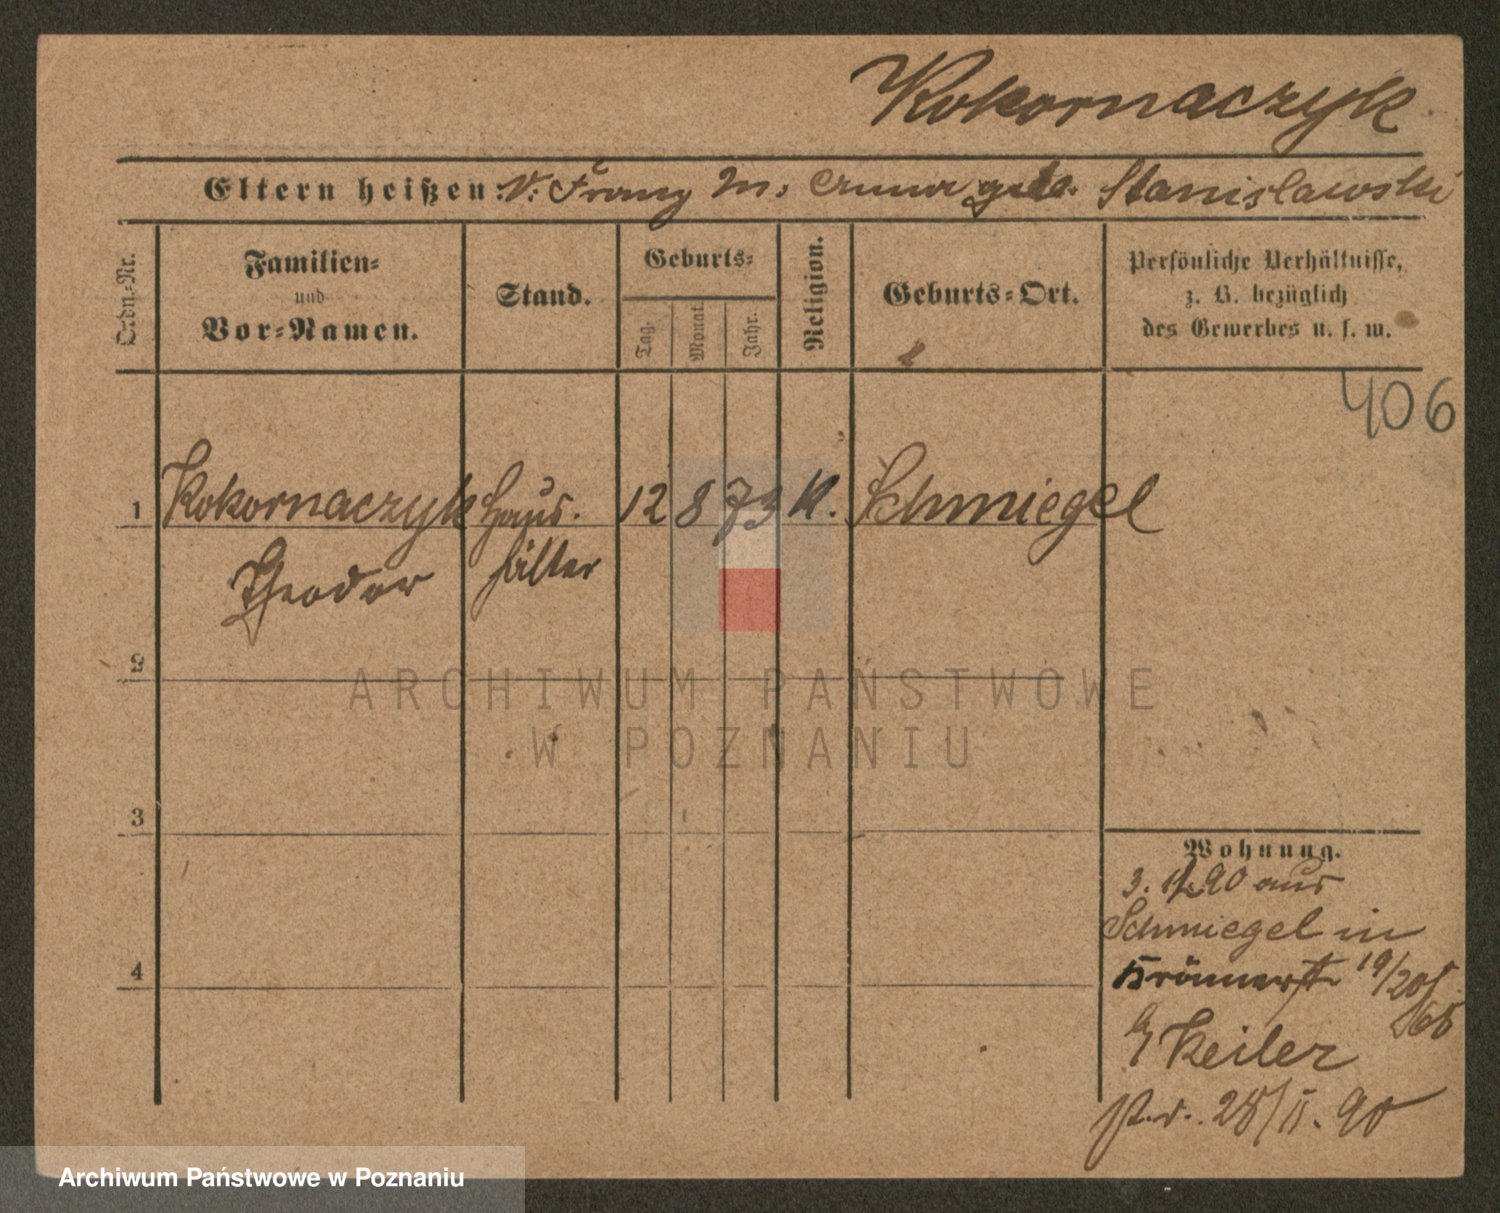 Kokornaczyk
Eltern heißen: V: Franz M: geb. Stanislawski
Ordn.-Nr.
Familien-
und
Vor-Namen.
Stand.
Geburts-
Tag.
Monat.
Jahr.
Religion.
Geburts-Ort.
Persönliche Verhältnisse,
z. B. bezüglich
des Gewerbes u. s. w.
406
1 Kokornaczyk Haus- 12 8 73 K. Schmiegel
Theodor hälter
2
3
4
Wohnung.
90 aus
Schmiegel in
19/20
Keiler
28/II. 90
ARCHIWUM PAŃSTWOWE
W POZNANIU
Archiwum Państwowe w Poznaniu